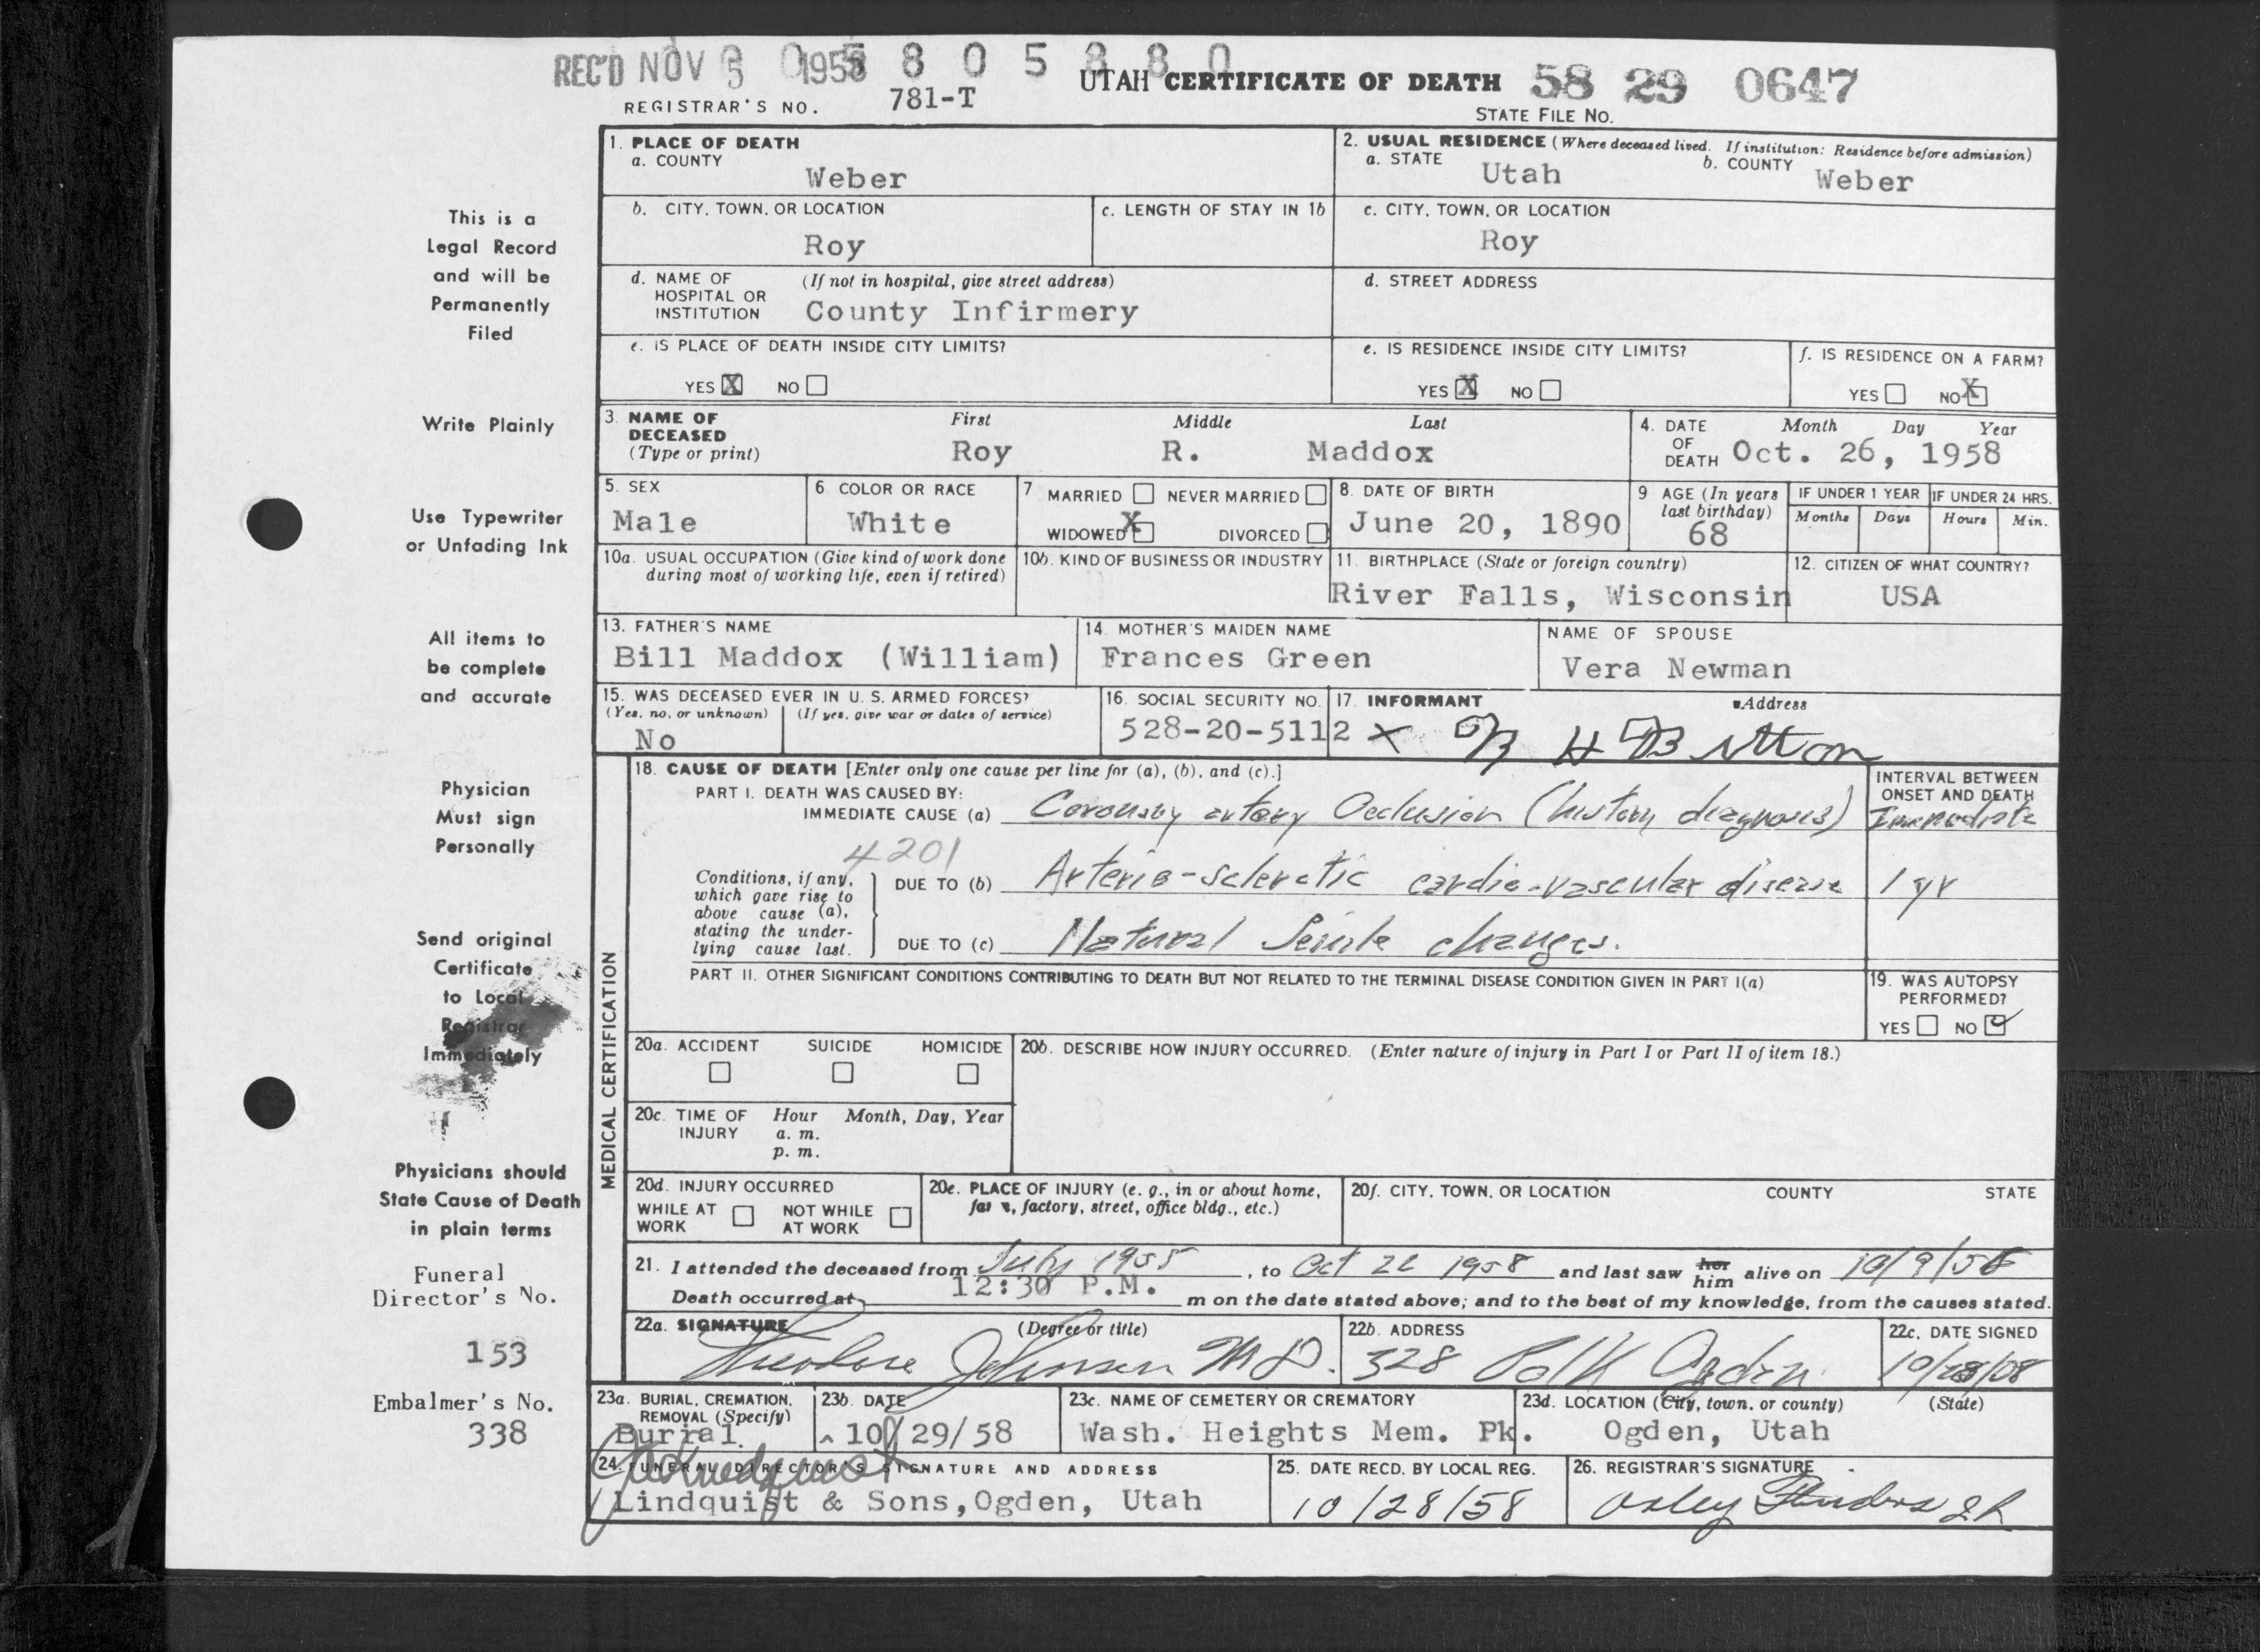 REC'D NOV 5 1958 0 5 8 0 5 8 8 0
UTAH CERTIFICATE OF DEATH 58 29 0647
REGISTRAR'S NO. 781-T
STATE FILE No.
1. PLACE OF DEATH
a. COUNTY
Weber
2. USUAL RESIDENCE (Where deceased lived. If institution: Residence before admission)
a. STATE Utah b. COUNTY Weber
b. CITY, TOWN, OR LOCATION
Roy
c. LENGTH OF STAY IN 1b
c. CITY, TOWN, OR LOCATION
Roy
d. NAME OF HOSPITAL OR INSTITUTION (If not in hospital, give street address)
County Infirmery
d. STREET ADDRESS
e. IS PLACE OF DEATH INSIDE CITY LIMITS?
YES X NO
e. IS RESIDENCE INSIDE CITY LIMITS?
YES X NO
f. IS RESIDENCE ON A FARM?
YES NO X
3. NAME OF DECEASED (Type or print)
First Middle Last
Roy R. Maddox
4. DATE OF DEATH Month Day Year
Oct. 26, 1958
5. SEX
Male
6 COLOR OR RACE
White
7 MARRIED NEVER MARRIED
WIDOWED X DIVORCED
8. DATE OF BIRTH
June 20, 1890
9 AGE (In years last birthday)
68
IF UNDER 1 YEAR
Months Days
IF UNDER 24 HRS.
Hours Min.
10a. USUAL OCCUPATION (Give kind of work done during most of working life, even if retired)
10b. KIND OF BUSINESS OR INDUSTRY
11. BIRTHPLACE (State or foreign country)
River Falls, Wisconsin
12. CITIZEN OF WHAT COUNTRY?
USA
13. FATHER'S NAME
Bill Maddox (William)
14. MOTHER'S MAIDEN NAME
Frances Green
NAME OF SPOUSE
Vera Newman
15. WAS DECEASED EVER IN U. S. ARMED FORCES?
(Yes, no, or unknown) (If yes, give war or dates of service)
No
16. SOCIAL SECURITY NO.
528-20-5112
17. INFORMANT Address
x H Bitton
MEDICAL CERTIFICATION
18. CAUSE OF DEATH [Enter only one cause per line for (a), (b), and (c).]
PART I. DEATH WAS CAUSED BY:
IMMEDIATE CAUSE (a) Coronary artery Occlusion (history diagnosis)
INTERVAL BETWEEN ONSET AND DEATH
Immediate
4201
Conditions, if any, which gave rise to above cause (a), stating the underlying cause last.
DUE TO (b) Arterio-sclerotic cardio-vascular disease 1 yr
DUE TO (c) Natural Senile changes.
PART II. OTHER SIGNIFICANT CONDITIONS CONTRIBUTING TO DEATH BUT NOT RELATED TO THE TERMINAL DISEASE CONDITION GIVEN IN PART I(a)
19. WAS AUTOPSY PERFORMED?
YES NO
20a. ACCIDENT SUICIDE HOMICIDE
20b. DESCRIBE HOW INJURY OCCURRED. (Enter nature of injury in Part I or Part II of item 18.)
20c. TIME OF INJURY Hour Month, Day, Year
a. m.
p. m.
20d. INJURY OCCURRED
WHILE AT WORK NOT WHILE AT WORK
20e. PLACE OF INJURY (e. g., in or about home, farm, factory, street, office bldg., etc.)
20f. CITY, TOWN, OR LOCATION COUNTY STATE
21. I attended the deceased from July 1955, to Oct 22 1958 and last saw her him alive on 10/9/58
Death occurred at 12:30 P.M. m on the date stated above; and to the best of my knowledge, from the causes stated.
22a. SIGNATURE (Degree or title)
Theodore Johnson MD.
22b. ADDRESS
328 Polk Ogden
22c. DATE SIGNED
10/28/58
23a. BURIAL, CREMATION, REMOVAL (Specify)
Burial
23b. DATE
10/29/58
23c. NAME OF CEMETERY OR CREMATORY
Wash. Heights Mem. Pk.
23d. LOCATION (City, town, or county) (State)
Ogden, Utah
24. FUNERAL DIRECTOR'S SIGNATURE AND ADDRESS
Lindquist & Sons, Ogden, Utah
25. DATE RECD. BY LOCAL REG.
10/28/58
26. REGISTRAR'S SIGNATURE
This is a
Legal Record
and will be
Permanently
Filed
Write Plainly
Use Typewriter
or Unfading Ink
All items to
be complete
and accurate
Physician
Must sign
Personally
Send original
Certificate
to Local
Registrar
Immediately
Physicians should
State Cause of Death
in plain terms
Funeral
Director's No.
153
Embalmer's No.
338